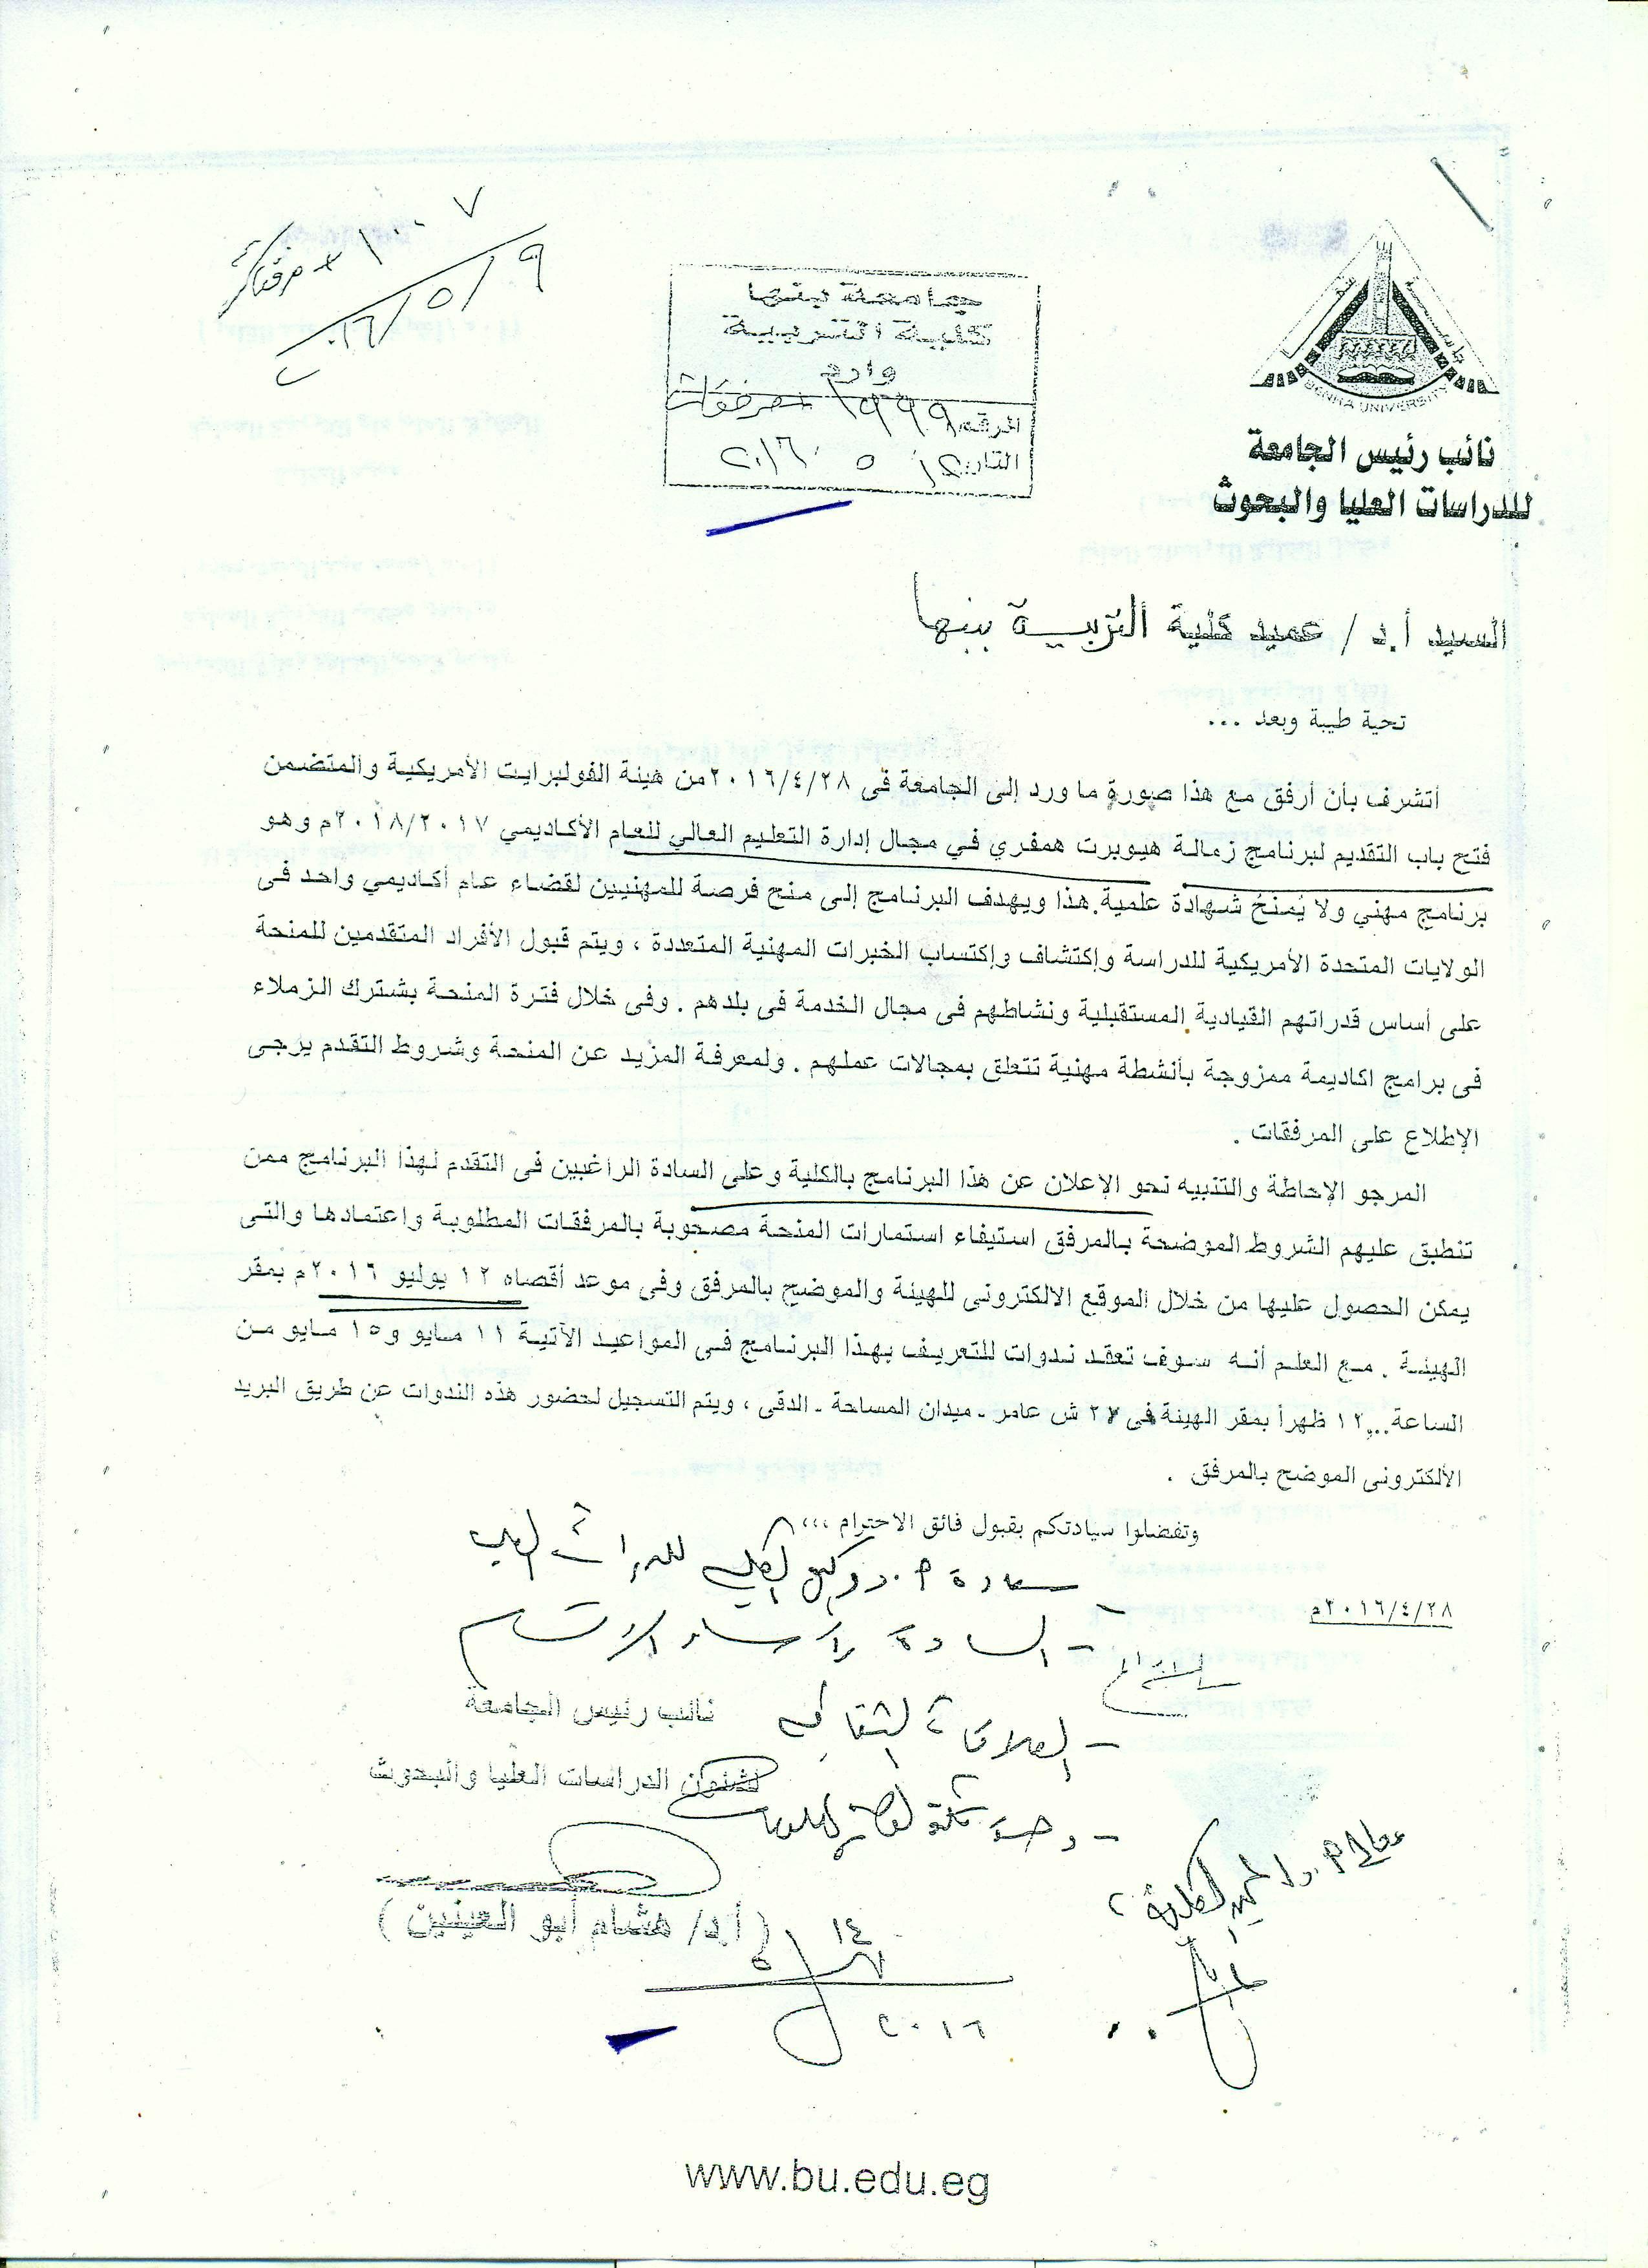 ١٠٠٧ + مرفقات
٢٠١٦/٥/٩
جامعة بنها
كلية التربية
وارد
الرقم ١٩٩٩ مرفقات
التاريخ ٢٠١٦
BENHA UNIVERSITY
نائب رئيس الجامعة
للدراسات العليا والبحوث
السيد أ.د / عميد كلية التربية ببنها
تحية طيبة وبعد ...
أتشرف بأن أرفق مع هذا صورة ما ورد إلى الجامعة فى ٢٠١٦/٤/٢٨ من هيئة الفولبرايت الأمريكية والمتضمن
فتح باب التقديم لبرنامج زمالة هيوبرت همفري في مجال إدارة التعليم العالي للعام الأكاديمي ٢٠١٨/٢٠١٧م وهو
برنامج مهني ولا يُمنحُ شهادة علمية.هذا ويهدف البرنامج إلى منح فرصة للمهنيين لقضاء عام أكاديمي واحد فى
الولايات المتحدة الأمريكية للدراسة وإكتشاف وإكتساب الخبرات المهنية المتعددة ، ويتم قبول الأفراد المتقدمين للمنحة
على أساس قدراتهم القيادية المستقبلية ونشاطهم فى مجال الخدمة فى بلدهم . وفى خلال فترة المنحة يشترك الزملاء
فى برامج اكاديمة ممزوجة بأنشطة مهنية تتعلق بمجالات عملهم . ولمعرفة المزيد عن المنحة وشروط التقدم يرجى
الإطلاع على المرفقات .
المرجو الإحاطة والتنبيه نحو الإعلان عن هذا البرنامج بالكلية وعلى السادة الراغبين فى التقدم لهذا البرنامج ممن
تنطبق عليهم الشروط الموضحة بالمرفق استيفاء استمارات المنحة مصحوبة بالمرفقات المطلوبة واعتمادها والتى
يمكن الحصول عليها من خلال الموقع الالكترونى للهيئة والموضح بالمرفق وفى موعد أقصاه ١٢ يوليو ٢٠١٦م بمقر
الهيئة . مع العلم أنه سوف تعقد ندوات للتعريف بهذا البرنامج فى المواعيد الآتية ١١ مايو و١٥ مايو من
الساعة ... ١٢ ظهراً بمقر الهيئة فى ش عامر - ميدان المساحة - الدقى ، ويتم التسجيل لحضور هذه الندوات عن طريق البريد
الألكترونى الموضح بالمرفق .
وتفضلوا سيادتكم بقبول فائق الاحترام ،،،
- سعادة أ.د وكيل الكلية للدراسات العليا
٢٠١٦/٤/٢٨م
- السادة رؤساء الأقسام
- العلاقات الثقافية
نائب رئيس الجامعة
لشئون الدراسات العليا والبحوث
- وحدة
( أ.د/ هشام أبو العينين )
١٤
٥
٢٠١٦
www.bu.edu.eg